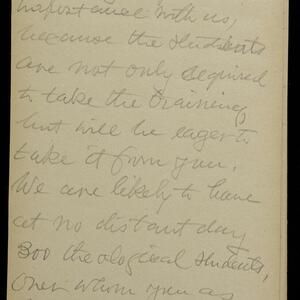 importance with us,
because the students
are not only required
to take the training
but will be eager to
take it from you.
We are likely to have
at no distant day
300 theological students,
over whom you as